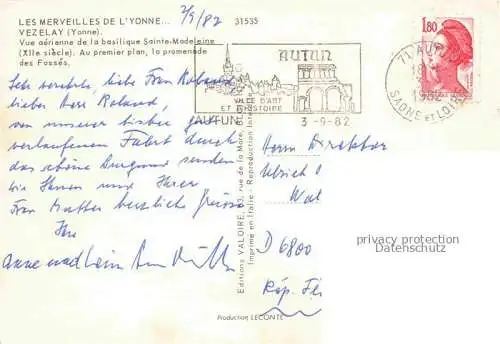 LES MERVEILLES DE L'YONNE...
VEZELAY (Yonne).
31535
Vue aérienne de la basilique Sainte-Madeleine
(XIIe siècle). Au premier plan, la promenade
des Fossés.
2/9/82
Sehr verehrte, liebe Frau Roland
lieber Herr Roland,
von unserer bisher gut
verlaufenen Fahrt durch
das schöne Burgund senden
wir Ihnen und Ihrer
Frau Mutter herzliche Grüsse
Ihre
Anne
AUTUN
VILLE D'ART
ET D'HISTOIRE
AUTUN
3-9-82
1,80
71 AUTUN
1982
SAONE ET LOIRE
Editions VALOIRE, 83, rue de la Mare, BLOIS
Imprimé en Italie - Reproduction
Herrn Direktor
Ulrich
Wal
D 6800
Rép. Fé
privacy protection
Datenschutz
Production LECONTE